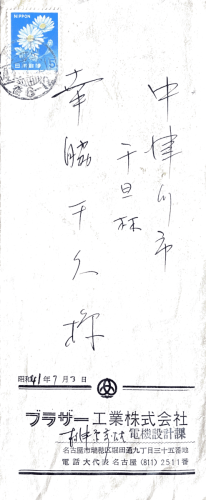 NIPPON
日本郵便
中津川市
千旦林
幸脇千久様
昭和41年7月3日
ブラザー工業株式会社
電機設計課
名古屋市瑞穂区堀田通九丁目三十五番地
電話大代表名古屋(811)2511番